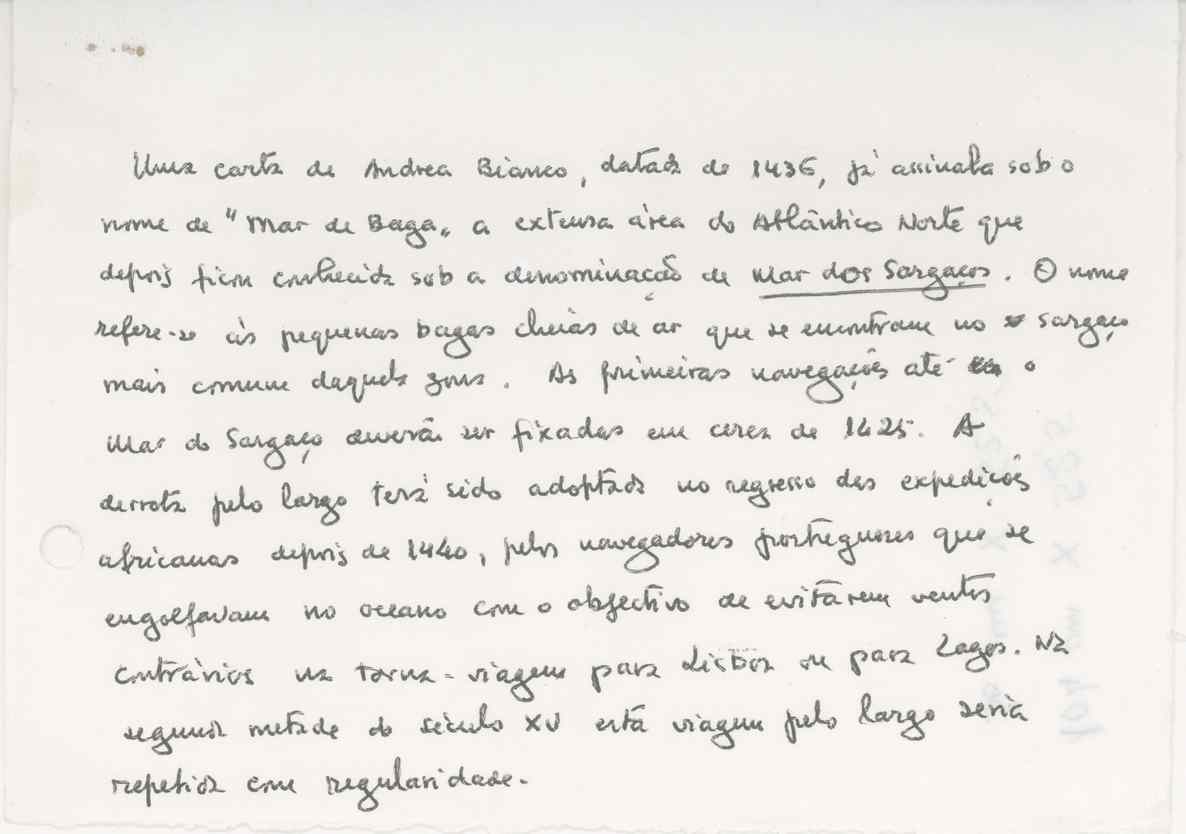 Uma carta de Andrea Bianco, datada de 1436, já assinala sob o
nome de "Mar de Baga„ a extensa área do Atlântico Norte que
depois ficou conhecida sob a denominação de Mar dos Sargaços. O nome
refere-se às pequenas bagas cheias de ar que se encontram no sargaço
mais comum daquela zona. As primeiras navegações até o
Mar do Sargaço deverão ser fixadas em cerca de 1425. A
derrota pelo largo terá sido adoptada no regresso das expedições
africanas depois de 1440, pelos navegadores portugueses que se
engolfavam no oceano com o objectivo de evitarem ventos
contrários na torna-viagem para Lisboa ou para Lagos. Na
segunda metade do século XV esta viagem pelo largo seria
repetida com regularidade.